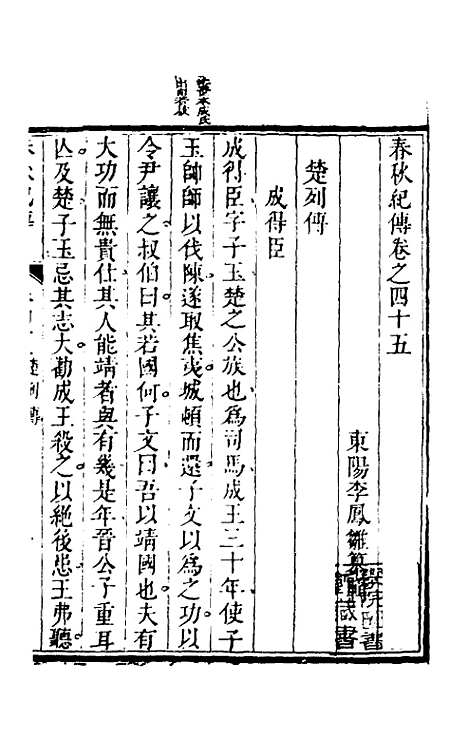 春秋紀傳卷之四十五
東陽李鳳雛
楚列傳
成得臣
成得臣字子玉楚之公族也為司馬成王三十年使子
玉帥師以伐陳遂取焦夷城頓而還子文以為之功以
令尹讓之叔伯曰其若國何子文曰吾以靖國也夫有
大功而無貴仕其人能靖者與有幾是年晉公子重耳
亾及楚子玉忌其志大勸成王殺之以絕後患王弗聽
楚列傳